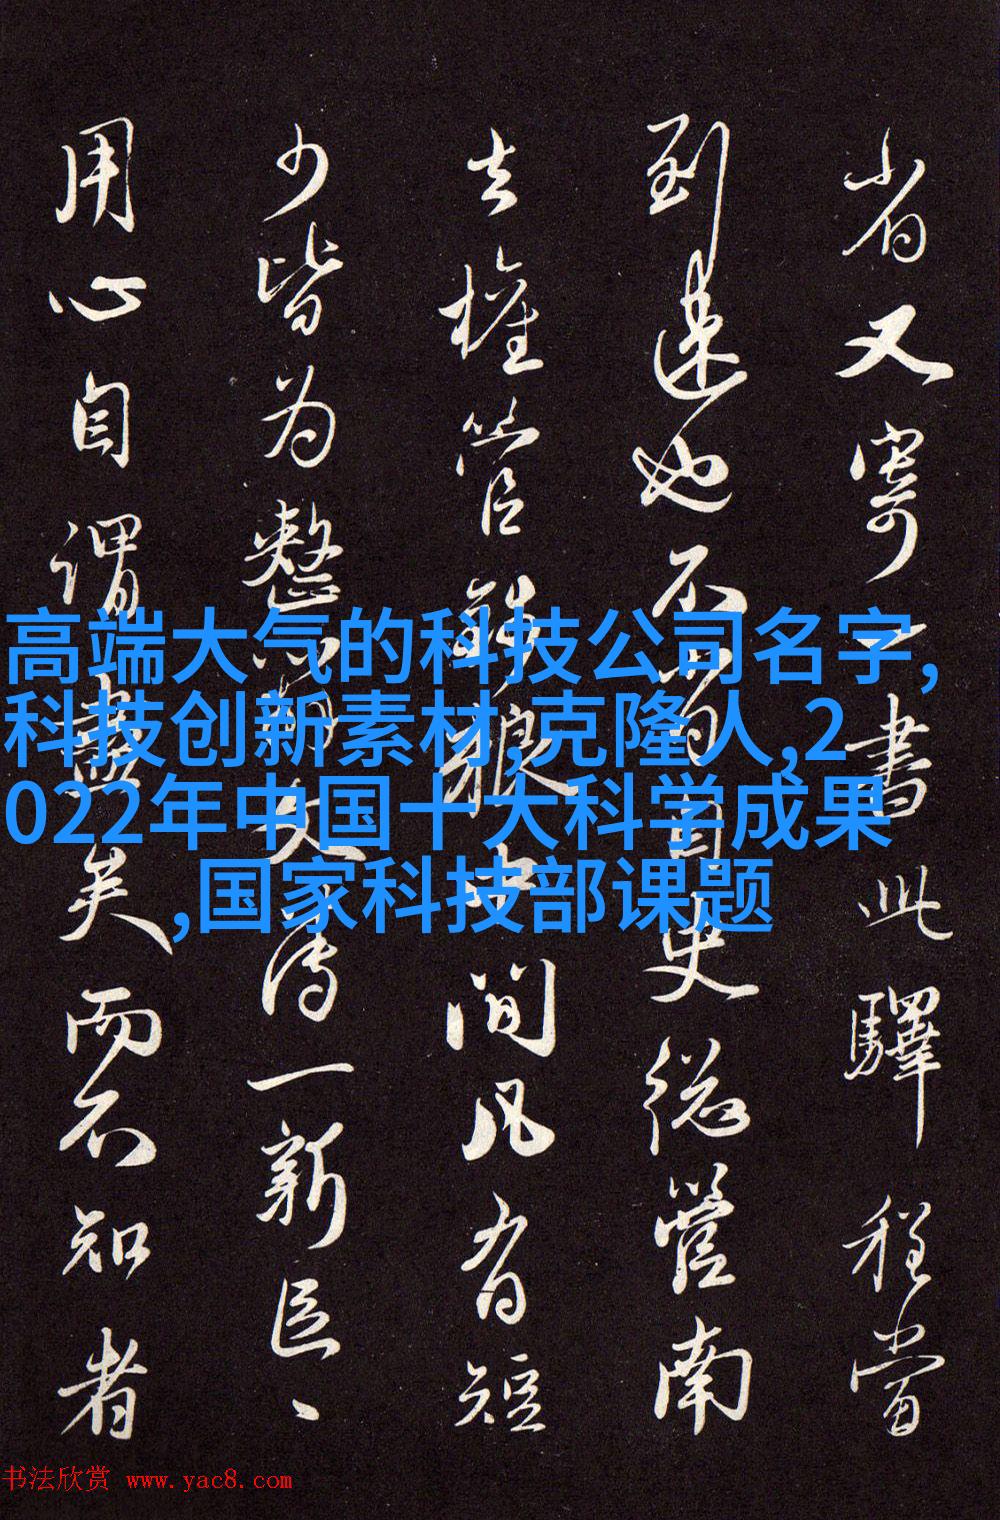 省又寄一書此驛程當
到速也不自史總管南
去權管中間凡有短
少皆为整一新臣
用心自謂盡矣而不知者
高端大气的科技公司名字,
科技创新素材,克隆人,2
022年中国十大科学成果
,国家科技部课题
书法欣赏 www.yac8.com